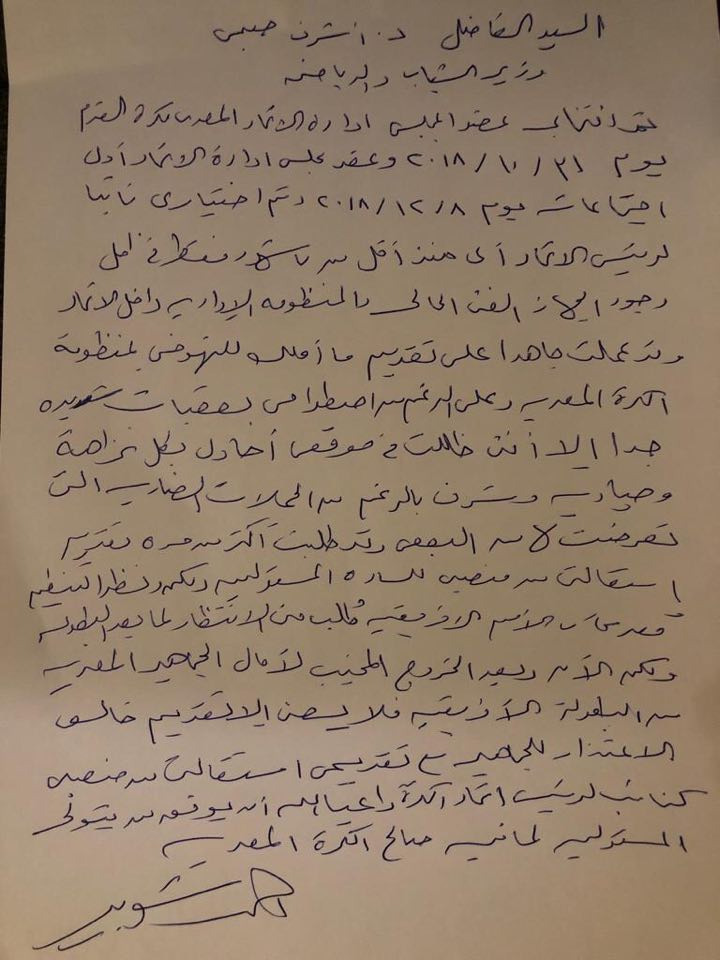 السيد الفاضل د. أشرف صبحى
وزير الشباب والرياضه
تم انتخابى عضو لمجلس ادارة الاتحاد المصرى لكرة القدم
يوم ٣١ / ١٠ / ٢٠١٨ وعقد مجلس ادارة الاتحاد أول
اجتماعاته يوم ٨ / ١٢ / ٢٠١٨ وتم اختيارى نائبا
لرئيس الاتحاد أى منذ أقل من ٧ شهور فقط فى ظل
وجود الجهاز الفنى الحالى والمنظومه الإداريه داخل الاتحاد
وقد عملت جاهدا على تقديم ما أملك للنهوض بمنظومة
الكرة المصريه وعلى الرغم من اصطدامى بعقبات شديده
جدا إلا أننى ظللت فى موقعى أحاول بكل نزاهة
وحياديه وشرف بالرغم من الحملات الضاريه التى
تعرضت لها من البعض وقد طلبت أكثر من مره تقديم
إستقالتى من منصبى للساده المسئولين ولكن ونظرا لتنظيم
مصر كأس الأمم الافريقيه طُلب منى الانتظار لما بعد البطوله
ولكن الآن وبعد الخروج المخيب لآمال الجماهير المصريه
من البطولة الأفريقيه فلا يسعنى إلا تقديم خالص
الاعتذار للجماهير مع تقديمى استقالتى من منصبى
كنائب لرئيس اتحاد الكرة داعيا الله أن يوفق من يتولى
المسئوليه لما فيه صالح الكرة المصريه
احمد شوبير